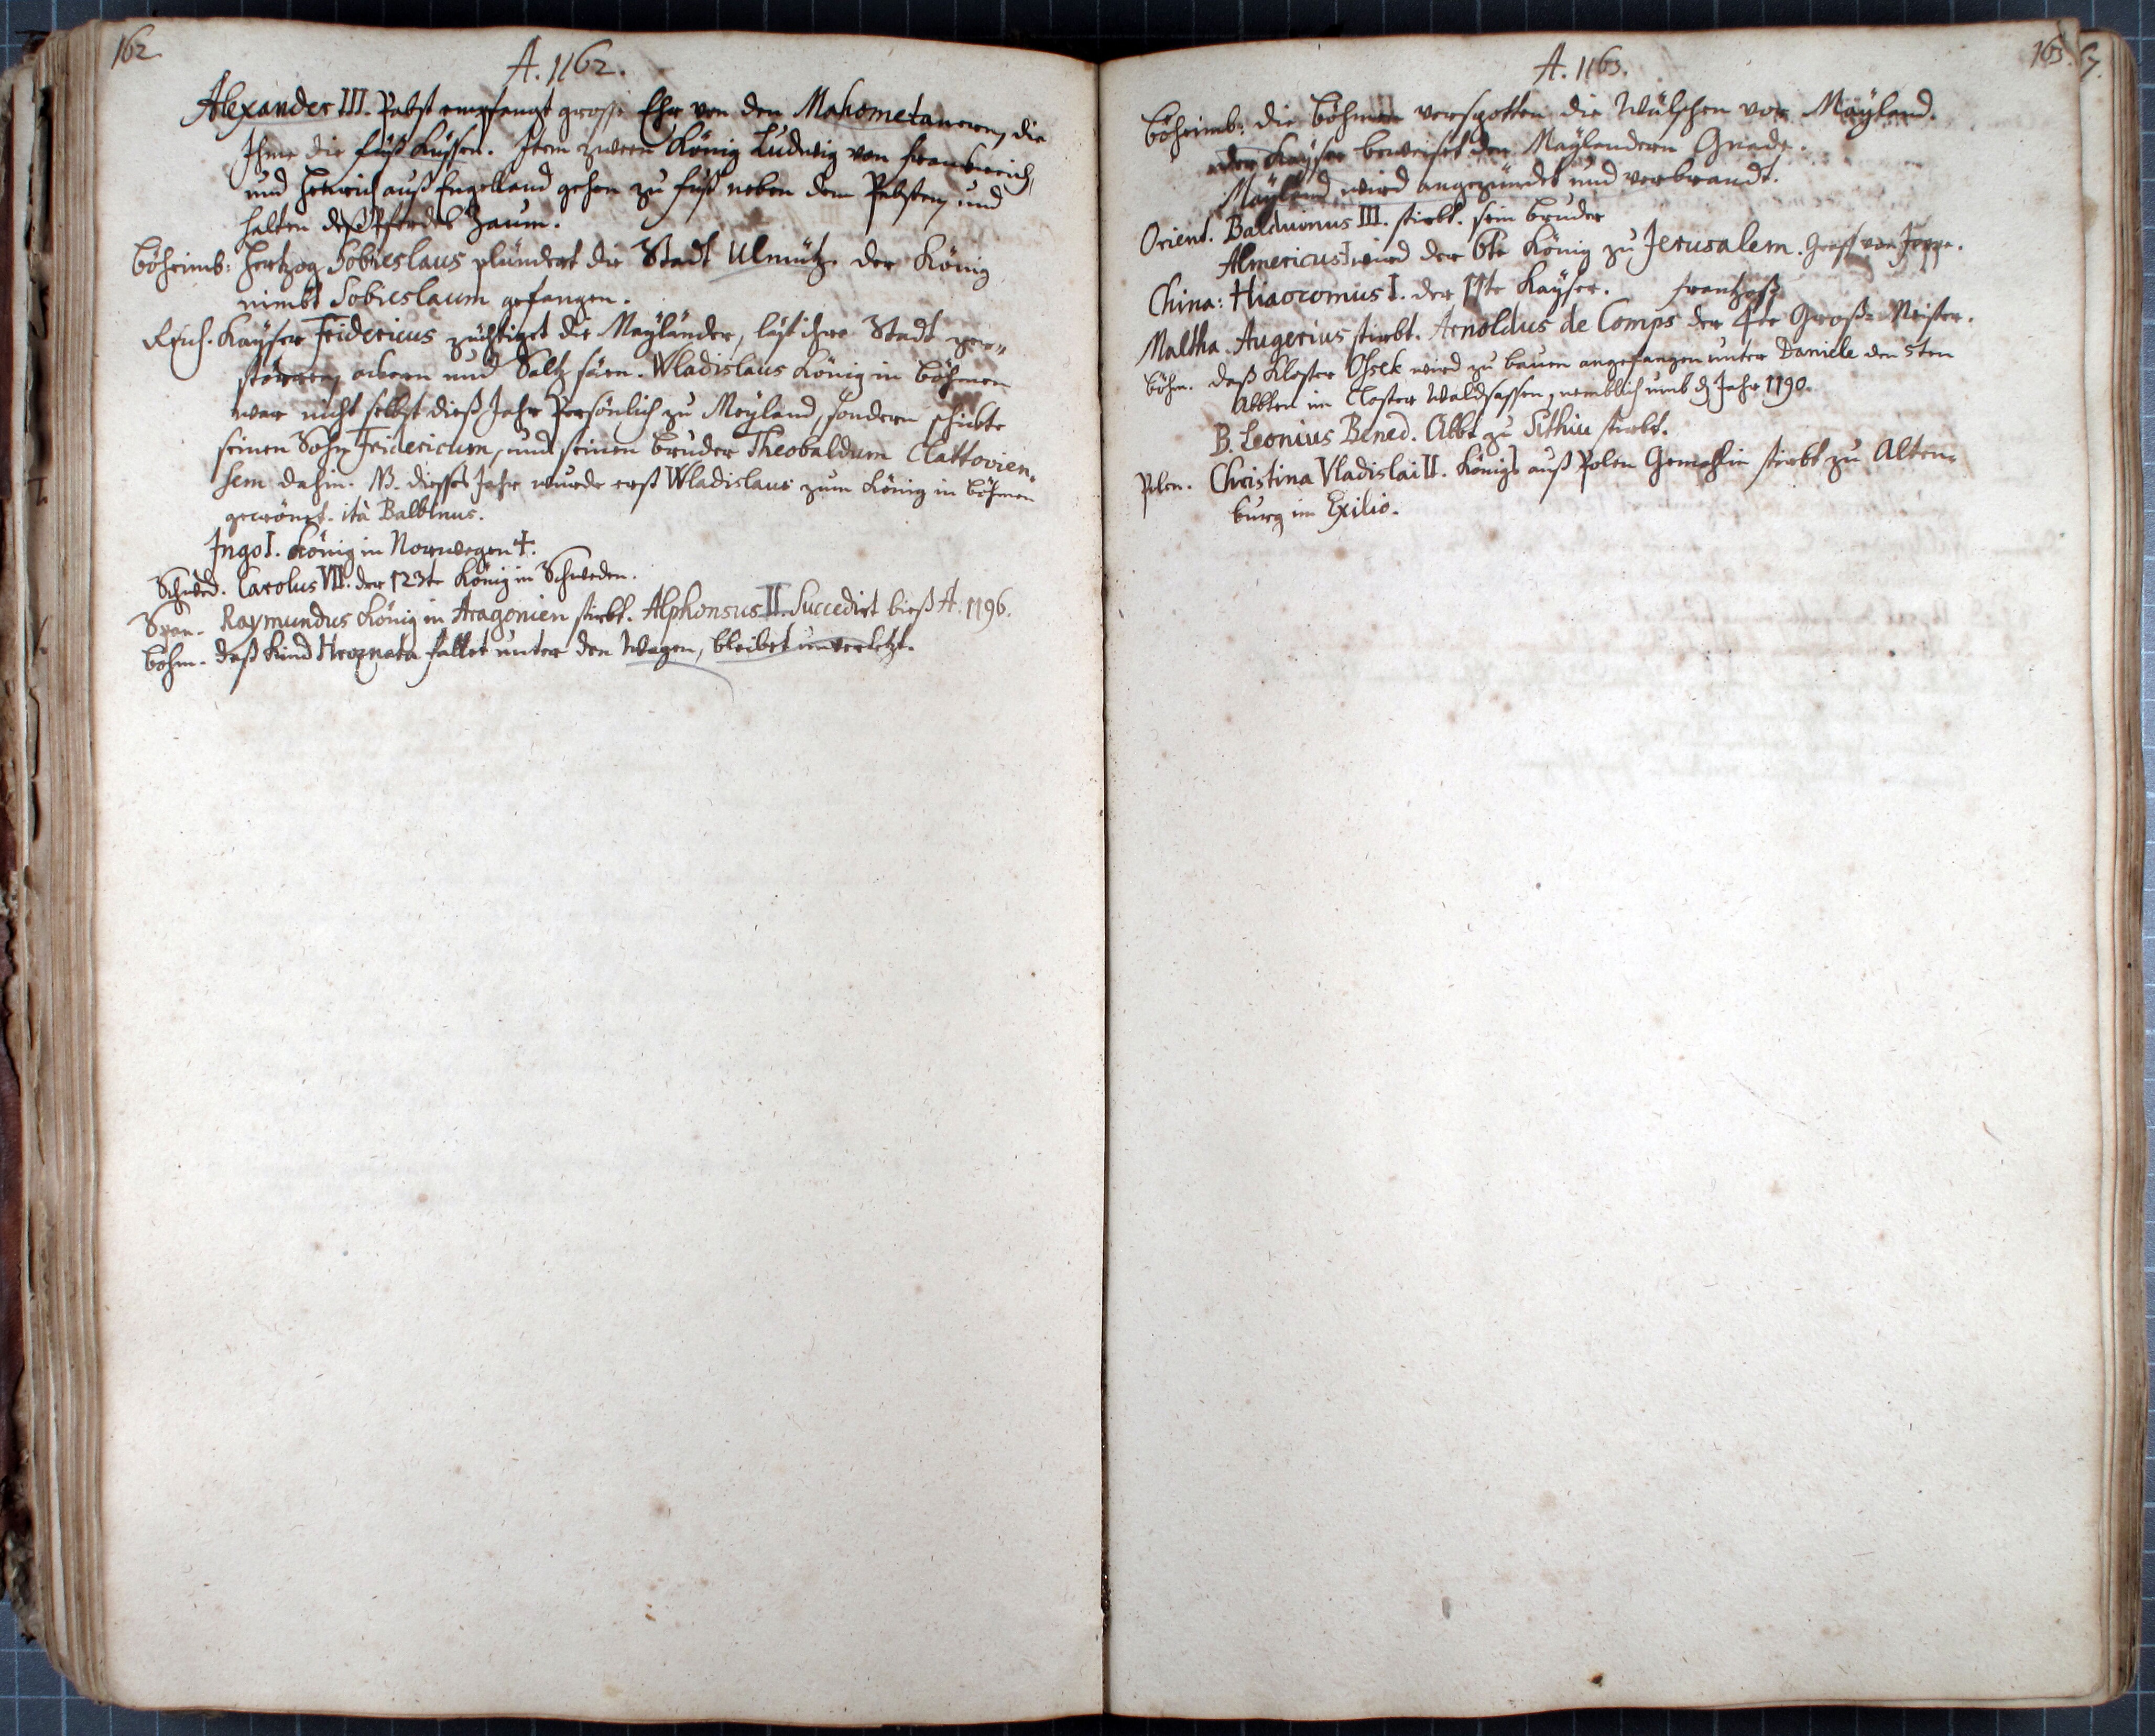 162.
A. 1162.
Alexander III. Pabst empfangt grosse Ehr von den Mahometanern, die
Ihme die füß küssen. Item zween König Ludwig von frankreich,
und Henrich auß Engelland gehen zu fuß neben dem Pabsten, und
halten deß Pferdes Zaum.
Böheimb: Hertzog Sobieslaus plündert die Stadt Ulmütz. der König
nimbt Sobieslaum gefangen.
Reich. Kayser Fridericus züchtiget die Mayländer, läst ihre Stadt zer-
störren, ackern und Saltz säen. Wladislaus König in Böhmen
war nicht selbst dieß Jahr Persönlich zu Meyland, sondern schickte
seinen Sohn Fridericum, und seinen bruder Theobaldum Clattovien-
sem dahin. NB. diesses Jahr wurde erst Wladislaus zum König in Böhmen
gecrönet. ità Balbinus.
Ingo I. König in Norwegen †.
Schwed. Carolus VII. der 123te König in Schweden.
Span. Raymundus König in Aragonien stirbt. Alphonsus II. Succedirt bieß A. 1196.
Böhm. daß Kind Hroznata fallet unter den Wagen, bleibet unverletzt.
163.
A. 1163.
Böheimb: die Böhmen verspotten die Wülschen vor Mayland.
der Kayser beweiset den Maylandern Gnade.
Mayland wird angezündet und verbrandt.
Orient. Balduinus III. stirbt. sein bruder
Almericus I wird der 6te König zu Jerusalem. Graff von Joppe.
China: Hiaocomus I. der 11te Kayser. frantzoß
Maltha. Augerius stirbt. Arnoldus de Comps der 4te Groß-Meister.
Böhm. daß Kloster Ossek wird zu bauen angefangen unter Daniele den 5ten
Abbten im Closter Waldsassen, nemblich umb das Jahr 1190.
B. Leonius Bened. Abbt zu Sithiu stirbt.
Polen. Christina Vladislai II. Königs auß Polen Gemahlin stirbt zu Alten-
burg im Exilio.